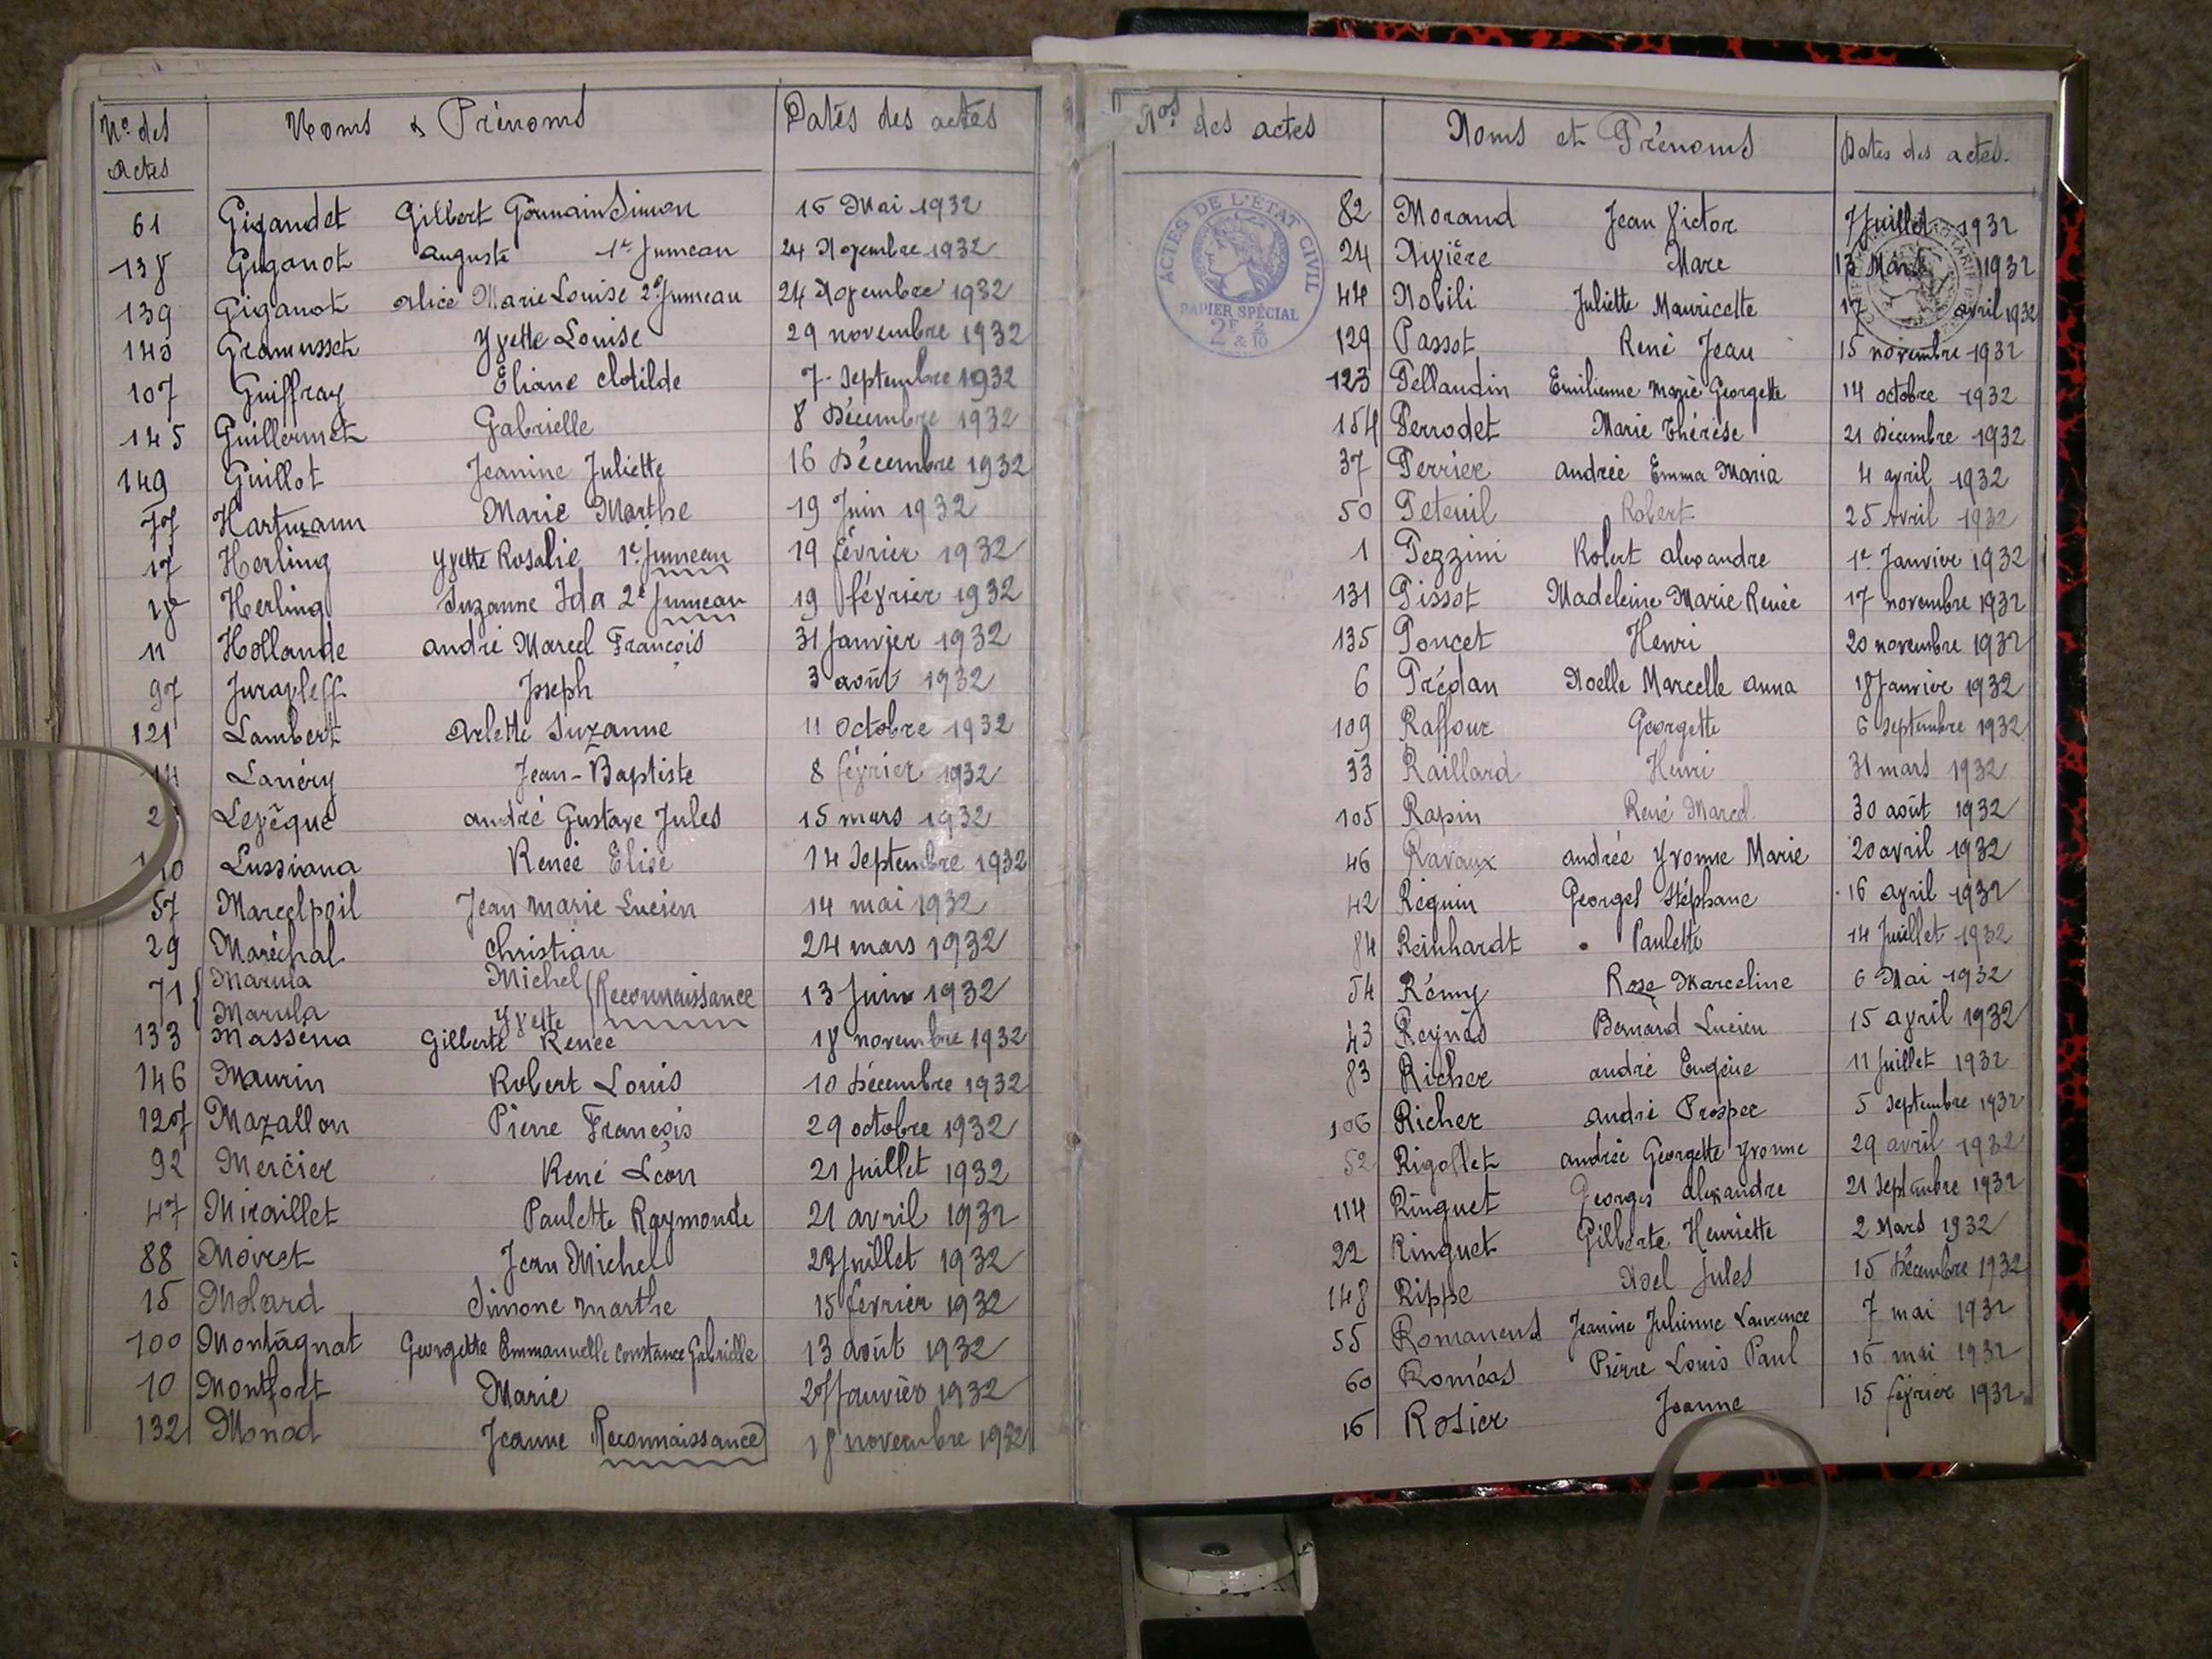 Nº des Actes Noms & Prénoms Dates des actes
61 Gigandet Gilbert Germain Simon 16 Mai 1932
138 Giganot Auguste 1er Jumeau 24 Novembre 1932
139 Giganot Alice Marie Louise 2e Jumeau 24 Novembre 1932
140 Gramusset Yvette Louise 29 novembre 1932
107 Guiffray Eliane Clotilde 7 Septembre 1932
145 Guillermet Gabrielle 8 Décembre 1932
149 Guillot Jeanine Juliette 16 Décembre 1932
77 Hartmann Marie Marthe 19 Juin 1932
17 Herling Yvette Rosalie 1e Jumeau 19 février 1932
18 Herling Suzanne Ida 2e Jumeau 19 février 1932
11 Hollande André Marcel François 31 Janvier 1932
97 Juravleff Joseph 3 août 1932
121 Lambert Arlette Suzanne 11 Octobre 1932
14 Lanéry Jean-Baptiste 8 février 1932
2 Levêque André Gustave Jules 15 mars 1932
10 Lussiana Renée Elise 14 Septembre 1932
57 Marcelpoil Jean Marie Lucien 14 mai 1932
29 Maréchal Christian 24 mars 1932
71 Marula Michel Reconnaissance 13 Juin 1932
Marula Yvette
133 Masséna Gilberte Renée 18 novembre 1932
146 Maurin Robert Louis 10 Décembre 1932
127 Mazallon Pierre François 29 octobre 1932
92 Mercier René Léon 21 Juillet 1932
47 Miraillet Paulette Raymonde 21 avril 1932
88 Moiret Jean Michel 23 Juillet 1932
15 Molard Simone Marthe 15 février 1932
100 Montagnat Georgette Emmanuelle Constance Gabrielle 13 août 1932
10 Montfort Marie 27 Janvier 1932
132 Monod Jeanne Reconnaissance 18 novembre 1932
Nos des actes Noms et Prénoms Dates des actes
ACTES DE L'ÉTAT CIVIL
PAPIER SPÉCIAL
2F & 2/10
82 Morand Jean Victor 7 Juillet 1932
24 Nivière Marc 13 Mars 1932
44 Nobili Juliette Mauricette 17 avril 1932
129 Passot René Jean 15 novembre 1932
123 Pellaudin Emilienne Marie Georgette 14 octobre 1932
154 Perrodet Marie Thérèse 21 Décembre 1932
37 Perrier Andrée Emma Maria 4 avril 1932
50 Peteuil Robert 25 Avril 1932
1 Pezzini Robert Alexandre 1er Janvier 1932
131 Pissot Madeleine Marie Renée 17 novembre 1932
135 Poncet Henri 20 novembre 1932
6 Prédan Noelle Marcelle Anna 18 Janvier 1932
109 Raffour Georgette 6 Septembre 1932
33 Raillard Henri 31 mars 1932
105 Rapin René Marcel 30 août 1932
46 Ravaux Andrée Yvonne Marie 20 avril 1932
42 Réquin Georges Stéphane 16 avril 1932
84 Reinhardt Paulette 14 Juillet 1932
54 Rémy Rose Marceline 6 Mai 1932
43 Reynès Bernard Lucien 15 avril 1932
83 Richer André Eugène 11 Juillet 1932
106 Richer André Prosper 5 Septembre 1932
52 Rigollet Andrée Georgette Yvonne 29 avril 1932
114 Ringuet Georges Alexandre 21 Septembre 1932
22 Ringuet Gilberte Henriette 2 Mars 1932
148 Rippe Noel Jules 15 Décembre 1932
55 Romanens Jeanine Julienne Laurence 7 mai 1932
60 Roméas Pierre Louis Paul 16 mai 1932
16 Rosier Jeanne 15 février 1932